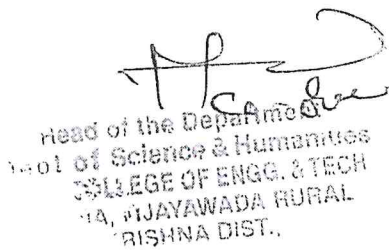 Head of the Department
of Science & Humanities
COLLEGE OF ENGG. & TECH
VIJAYAWADA RURAL
DIST.,